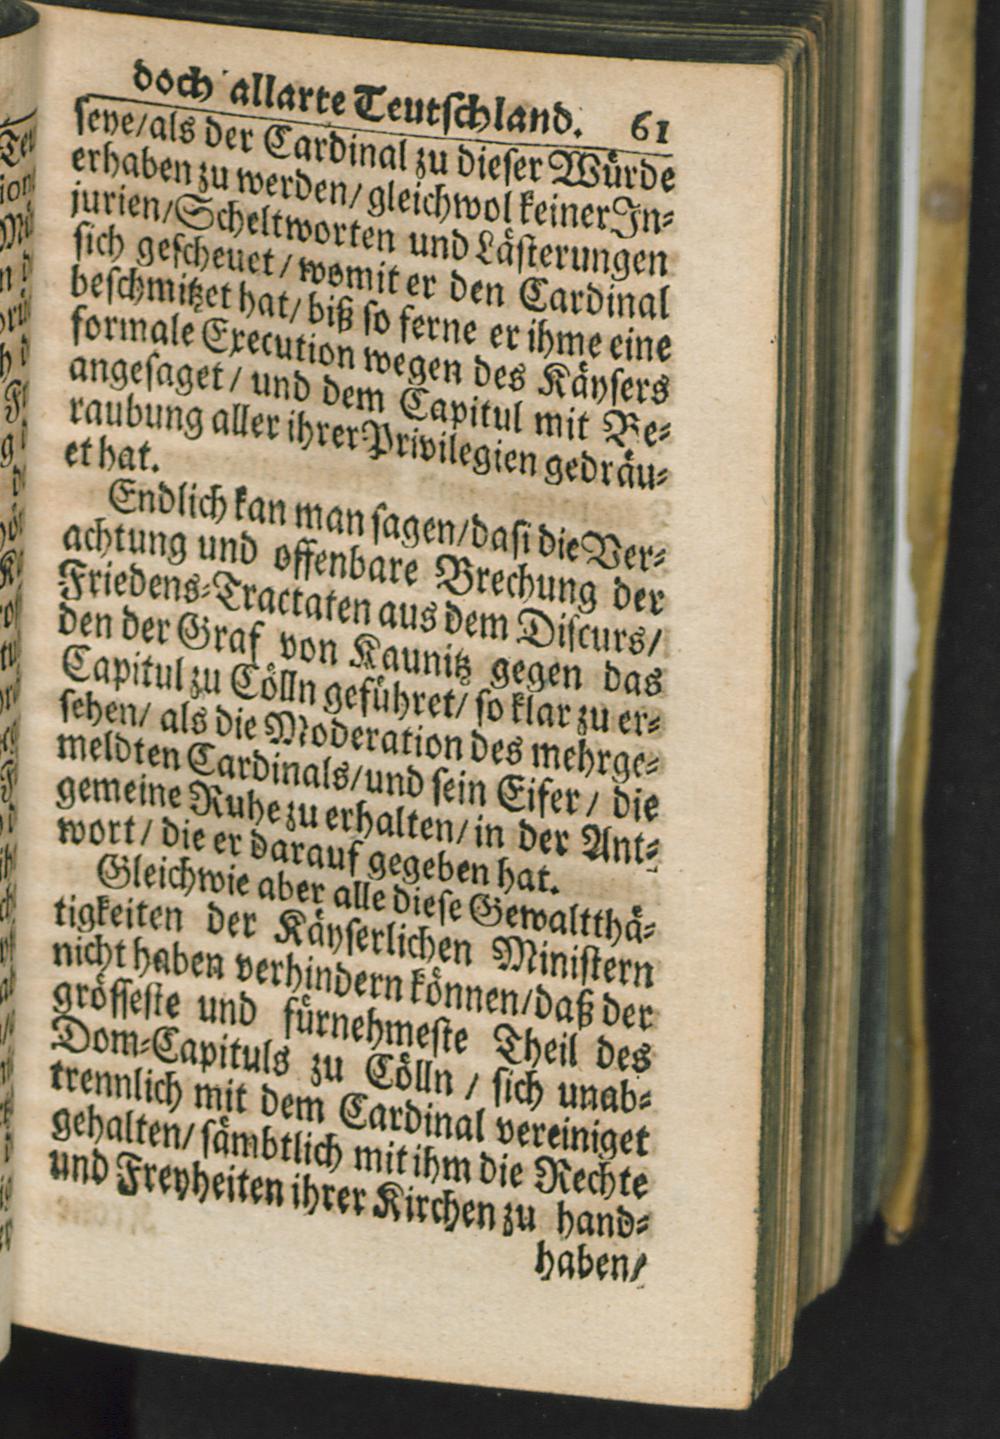 doch allarte Teutschland. 61
seye/als der Cardinal zu dieser Würde
erhaben zu werden/ gleichwol keiner In-
jurien/Scheltworten und Lästerungen
sich gescheuet / womit er den Cardinal
beschmitzet hat/ biß so ferne er ihme eine
formale Execution wegen des Käysers
angesaget / und dem Capitul mit Be-
raubung aller ihrer Privilegien gedräu-
et hat.
Endlich kan man sagen/dasi die Ver-
achtung und offenbare Brechung der
Friedens-Tractaten aus dem Discurs/
den der Graf von Kaunitz gegen das
Capitul zu Cölln geführet/ so klar zu er-
sehen/ als die Moderation des mehrge-
meldten Cardinals/und sein Eifer / die
gemeine Ruhe zu erhalten/ in der Ant-
wort / die er darauf gegeben hat.
Gleichwie aber alle diese Gewaltthä-
tigkeiten der Käyserlichen Ministern
nicht haben verhindern können/daß der
grösseste und fürnehmeste Theil des
Dom-Capituls zu Cölln / sich unab-
trennlich mit dem Cardinal vereiniget
gehalten/ sämbtlich mit ihm die Rechte
und Freyheiten ihrer Kirchen zu hand-
haben/